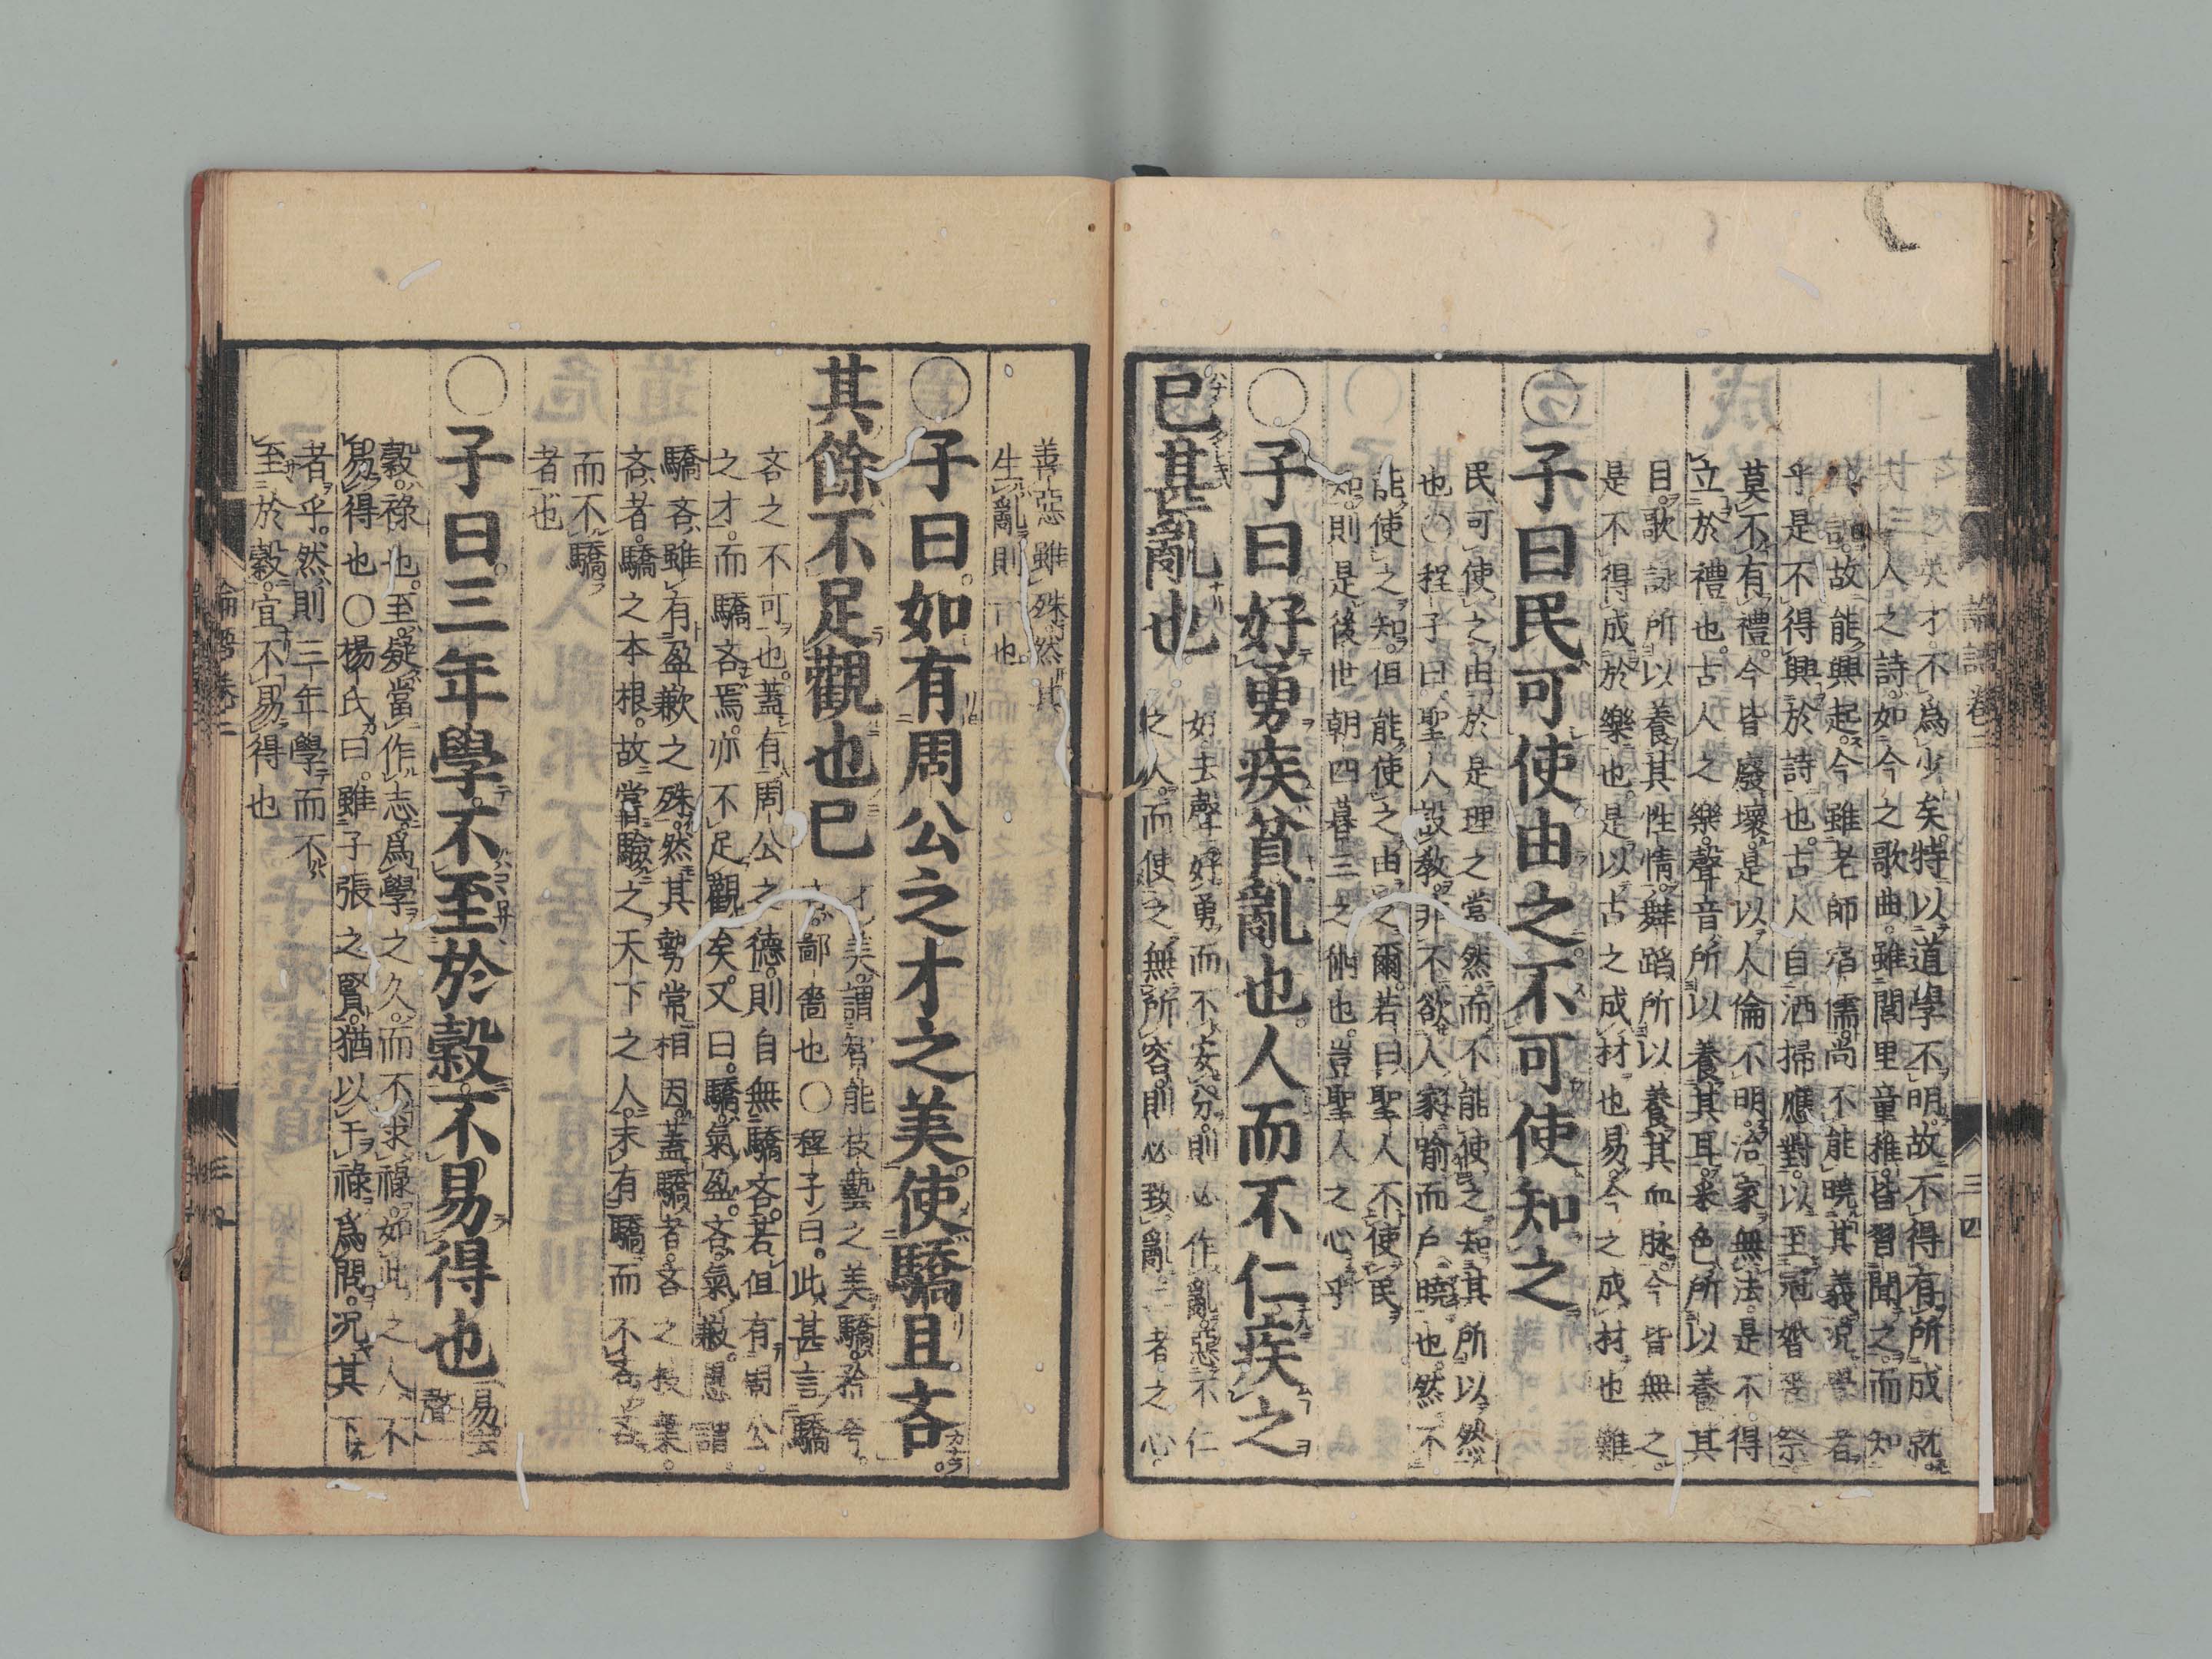 之英才不爲少矣特以道學不明故不得有所成就
夫三人之詩如今之歌曲雖閭里童稚皆習聞之而知
其說故能興起今雖老師宿儒尚不能曉其義況學者
乎是不得興於詩也古人自洒掃應對以至冠昏喪祭
莫不有禮今皆廢壞是以人倫不明治家無法是不得
立於禮也古人之樂聲音所以養其耳采色所以養其
目歌詠所以養其性情舞蹈所以養其血脉今皆無之
是不得成於樂也是以古之成材也易今之成材也難
○子曰民可使由之不可使知之
民可使之由於是理之當然而不能使之知其所以然
也○程子曰聖人設教非不欲人家喻而戶曉也然不
能使之知但能使之由之爾若曰聖人不使民
知則是後世朝四暮三之術也豈聖人之心乎
○子曰好勇疾貧亂也人而不仁疾之
已甚亂也
好去聲○好勇而不安分則必作亂惡不仁
之人而使之無所容則必致亂二者之心
論語卷二
三四
善惡雖殊然其
生亂則一也
○子曰如有周公之才之美使驕且吝
其餘不足觀也已
才美謂智能技藝之美驕矜夸
吝鄙嗇也○程子曰此甚言驕
吝之不可也蓋有周公之德則自無驕吝若但有周公
之才而驕吝焉亦不足觀矣又曰驕氣盈吝氣歉愚謂
驕吝雖有盈歉之殊然其勢常相因蓋驕者吝之枝葉
吝者驕之本根故嘗驗之天下之人未有驕而不吝吝
而不驕
者也
○子曰三年學不至於穀不易得也
易去
聲
穀祿也至疑當作志爲學之久而不求祿如此之人不
易得也○楊氏曰雖子張之賢猶以干祿爲問況其下
者乎然則三年學而不
至於穀宜不易得也
論語卷二
三四